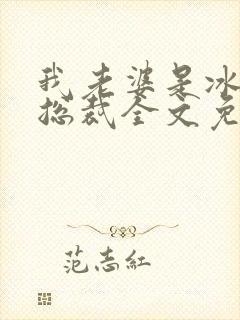 我老婆是冰
总裁全文免
范志红